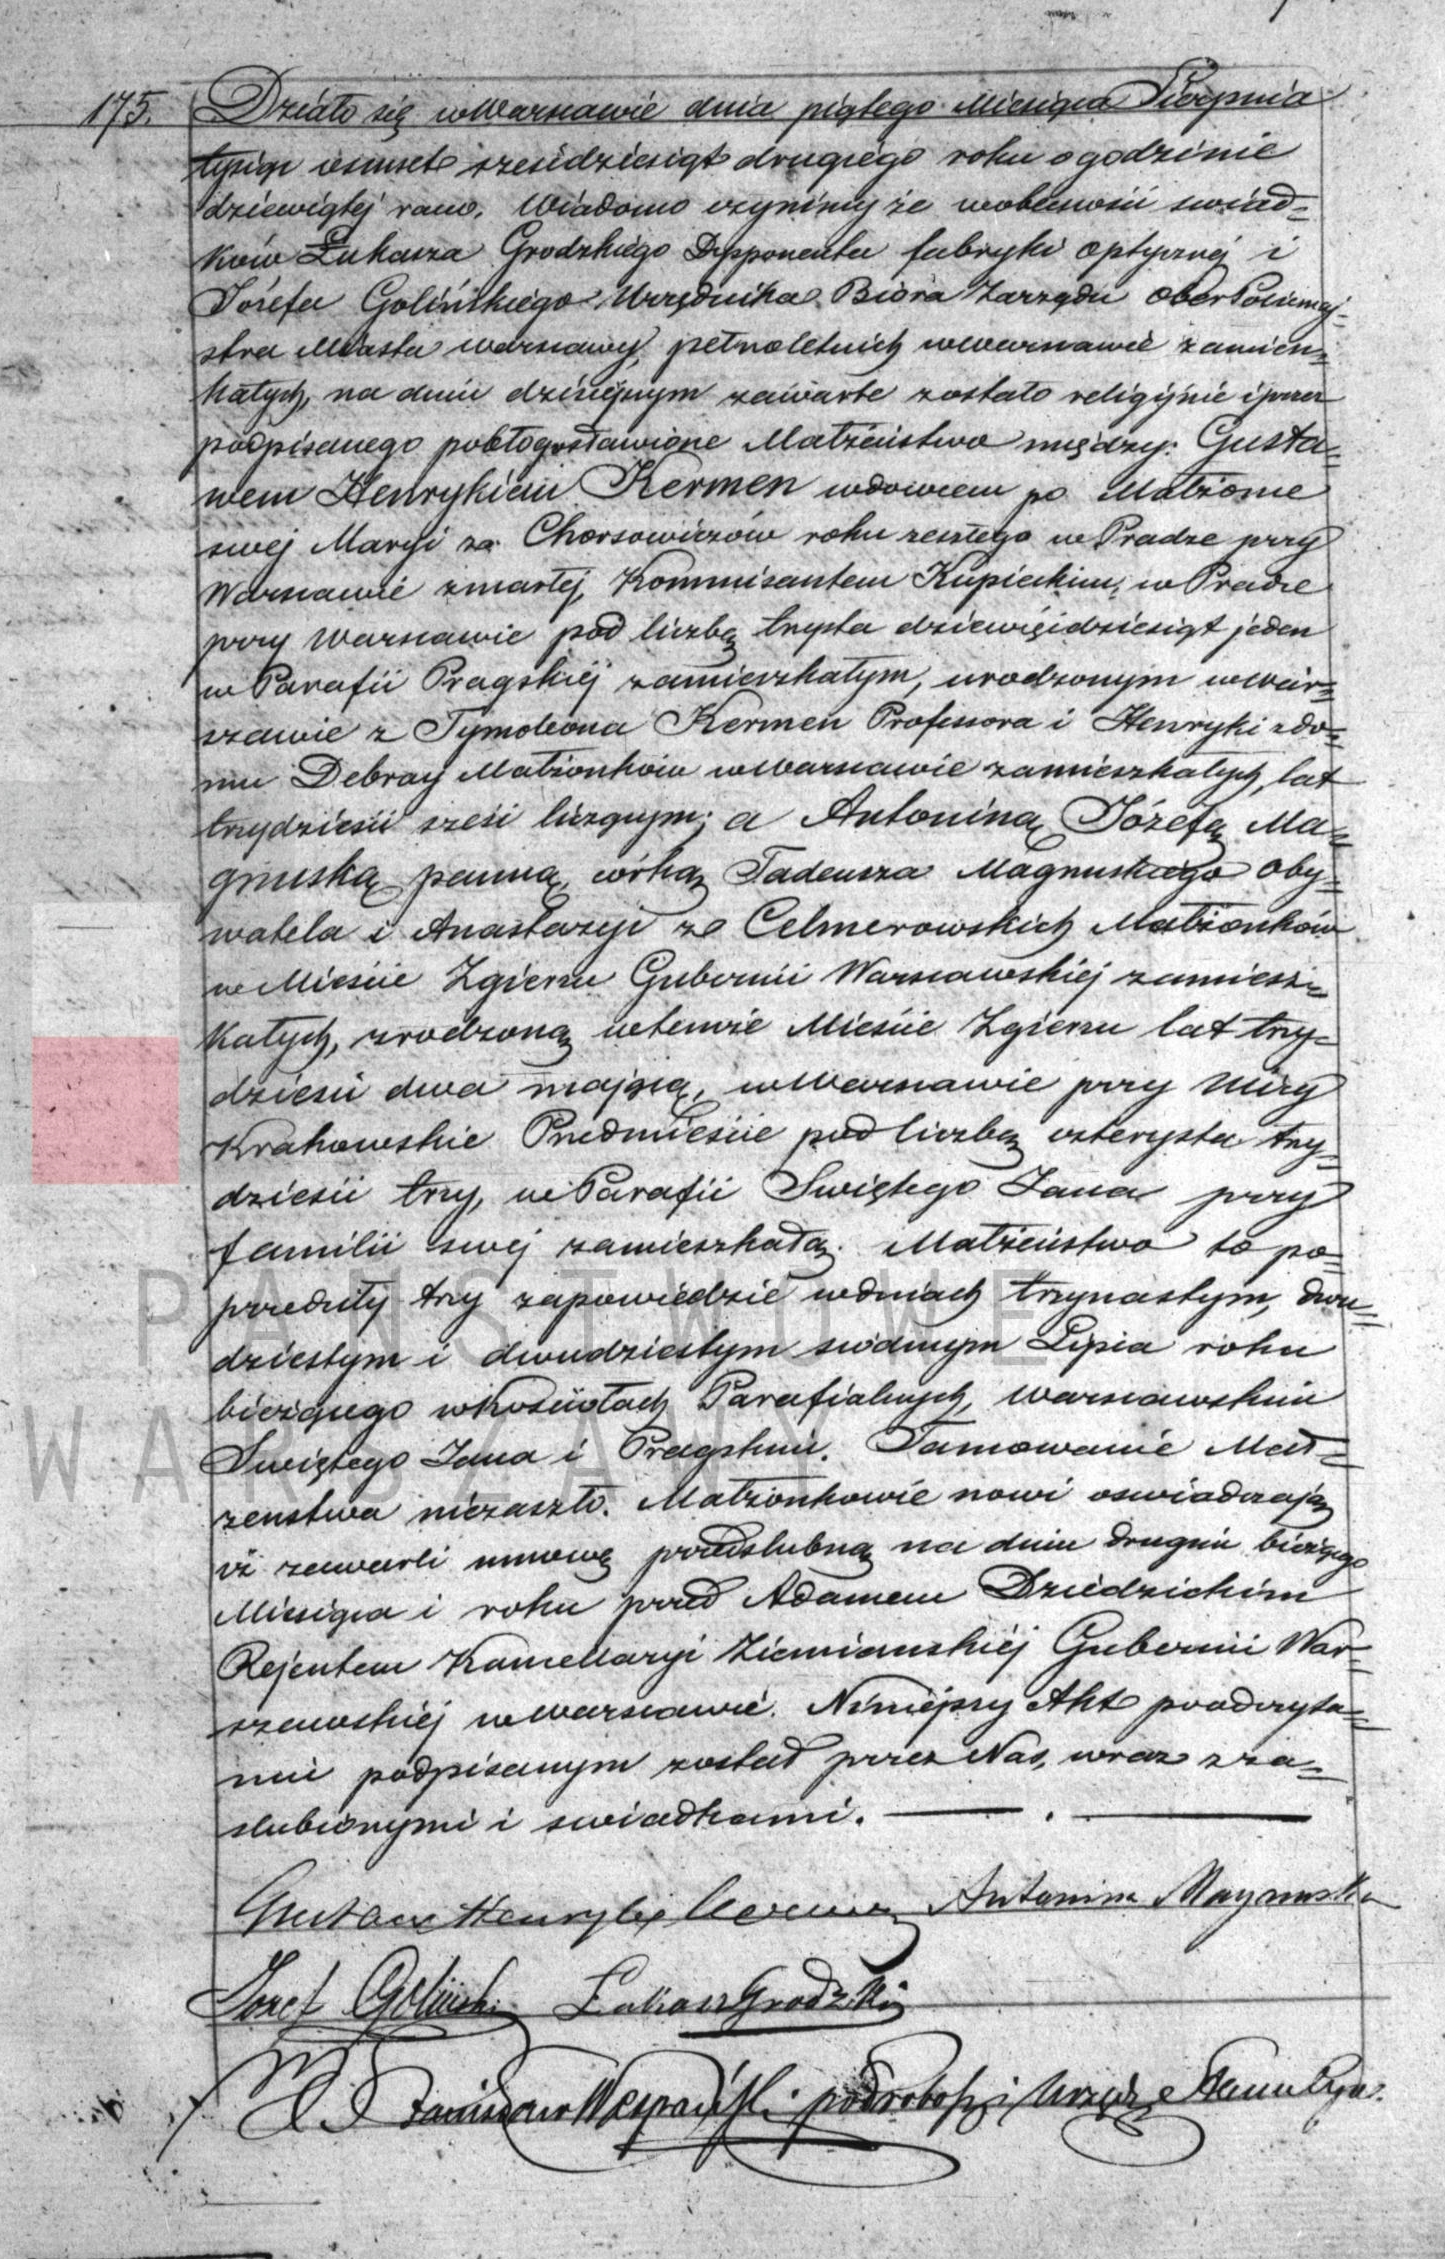 175. Działo się w Warszawie dnia piątego Miesiąca Sierpnia
tysiąc osmset sześćdziesiąt drugiego roku o godzinie
dziewiątej rano. Wiadomo czynimy że w obecności świad=
ków Łukasza Grodzkiego Dysponenta fabryki optycznej i
Józefa Golińskiego Urzędnika Bióra Zarządu OberPolicmaj=
stra Miasta Warszawy, pełnoletnich w Warszawie zamiesz=
kałych, na dniu dzisiejszym zawarte zostało religijnie i przez
podpisanego pobłogosławione Małżeństwo między: Gusta=
wem Henrykiem Kermen wdowcem po Małżonce
swej Maryi z Chorsowiczów roku zeszłego w Pradze przy
Warszawie zmarłej, Kommisantem Kupieckim, w Pradze
przy Warszawie pod liczbą trzysta dziewięćdziesiąt jeden
w Parafii Pragskiéj zamieszkałym, urodzonym w War=
szawie z Tymoleona Kermen Professora i Henryki z do=
mu Debray Małżonków w Warszawie zamieszkałych, lat
trzydzieści sześć liczącym; a Antoniną Józefą Ma=
gnuską panną, córką Tadeusza Magnuskiego Oby=
watela i Anastazyi z Celmerowskich Małżonków
w Mieście Zgierzu Gubernii Warszawskiéj zamiesz=
kałych, zrodzoną w temże Mieście Zgierzu lat trzy=
dzieści dwa mającą, w Warszawie przy Ulicy
Krakowskie Przedmieście pod liczbą czterysta trzy=
dzieści trzy, w Parafii Swiętego Jana przy
familii swej zamieszkałą. Małżeństwo to po=
przedziły trzy zapowiedzie w dniach trzynastym, dwu=
dziestym i dwudziestym siódmym Lipca roku
bieżącego w Kościołach Parafialnych, Warszawskim
Swiętego Jana i Pragskim. Tamowanie Mał=
żeństwa niezaszło. Małżonkowie nowi oświadczają
iż zawarli umowę przedślubną na dniu drugim bieżącego
Miesiąca i roku przed Adamem Dziedzickim
Rejentem Kancellaryi Ziemiańskiéj Gubernii War=
szawskiéj w Warszawie. Niniejszy Akt po odczyta=
niu podpisanym został przez Nas, wraz z za=
ślubionymi i świadkami.
Gustaw Henryk Kermen Antonina Magnuska
Józef Goliński Łukasz Grodzki
X Stanisław podproboszcz i Urzęd.
PAŃSTWOWE
WARSZAWY